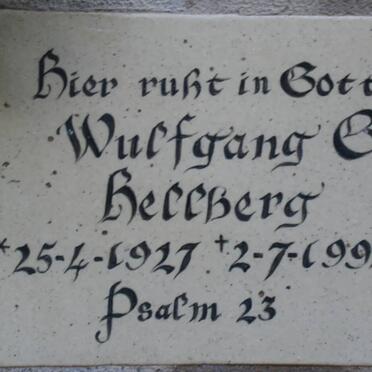 Hier ruht in Gott
Wulfgang
Hellberg
* 25-4-1927 † 2-7-199
Psalm 23